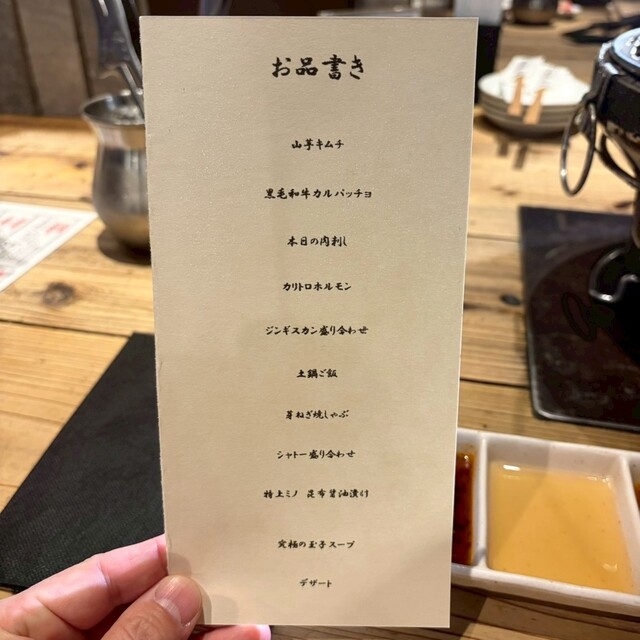 お品書き
山芋キムチ
黒毛和牛カルパッチョ
本日の肉刺し
カリトロホルモン
ジンギスカン盛り合わせ
土鍋ご飯
芽ねぎ焼しゃぶ
シャトー盛り合わせ
特上ミノ 昆布醤油漬け
究極の玉子スープ
デザート